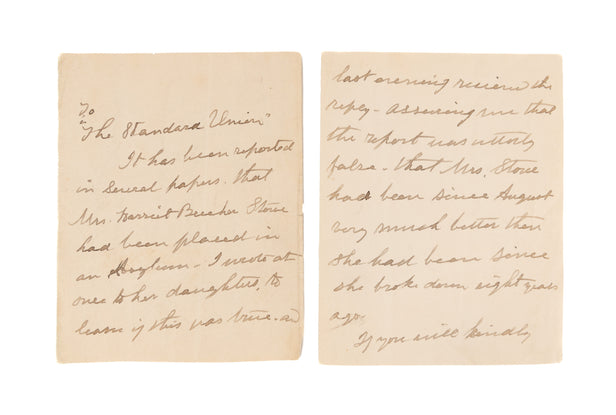 To
"The Standard Union"
It has been reported
in several papers. that
Mrs. Harriet Beecher Stowe
had been placed in
an Asylum - I wrote at
once to her daughters, to
learn if this was true. and
last evening recieved the
reply - assuring me that
the report was utterly
false - that Mrs. Stowe
had been since August
very much better then
she had been since
she broke down eight years
ago.
If you will kindly